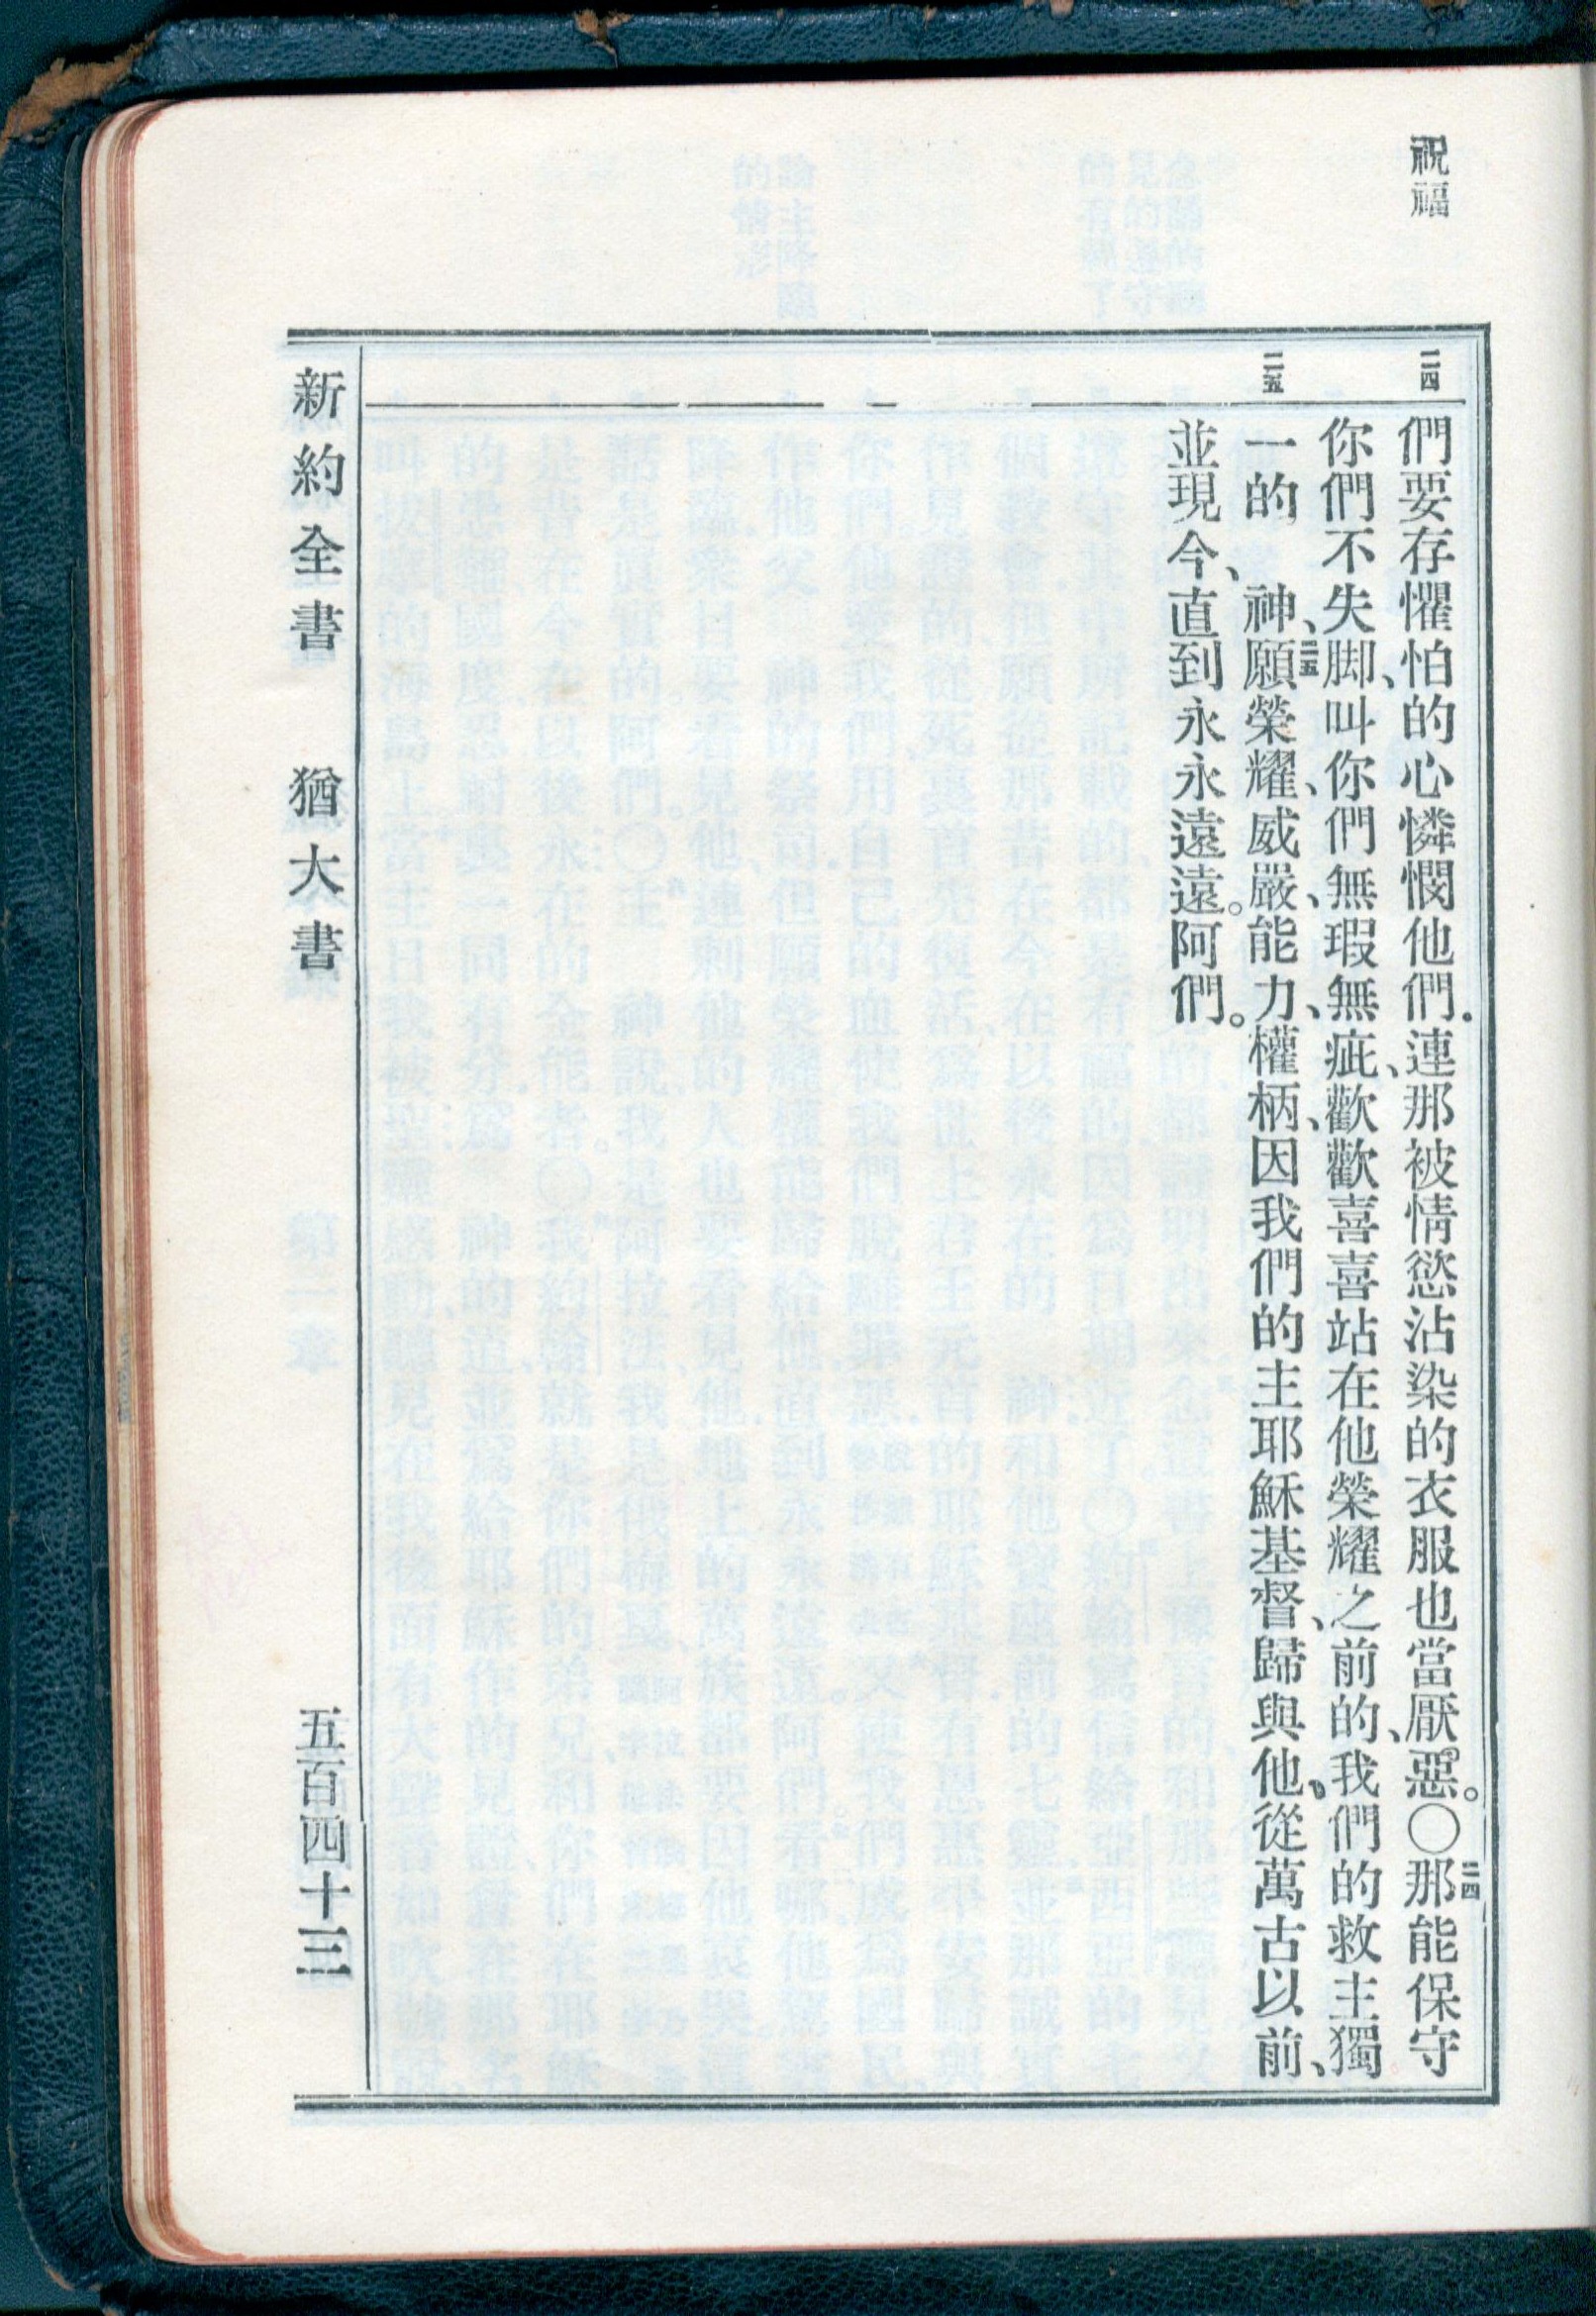 祝福
二四
們要存懼怕的心憐憫他們．連那被情慾沾染的衣服也當厭惡。〇二四那能保守
你們不失脚、叫你們無瑕無疵、歡歡喜喜站在他榮耀之前的、我們的救主獨
二五
一的　神、二五願榮耀、威嚴、能力、權柄、因我們的主耶穌基督、歸與他、從萬古以前、
並現今、直到永永遠遠。阿們。
新約全書　猶大書　五百四十三